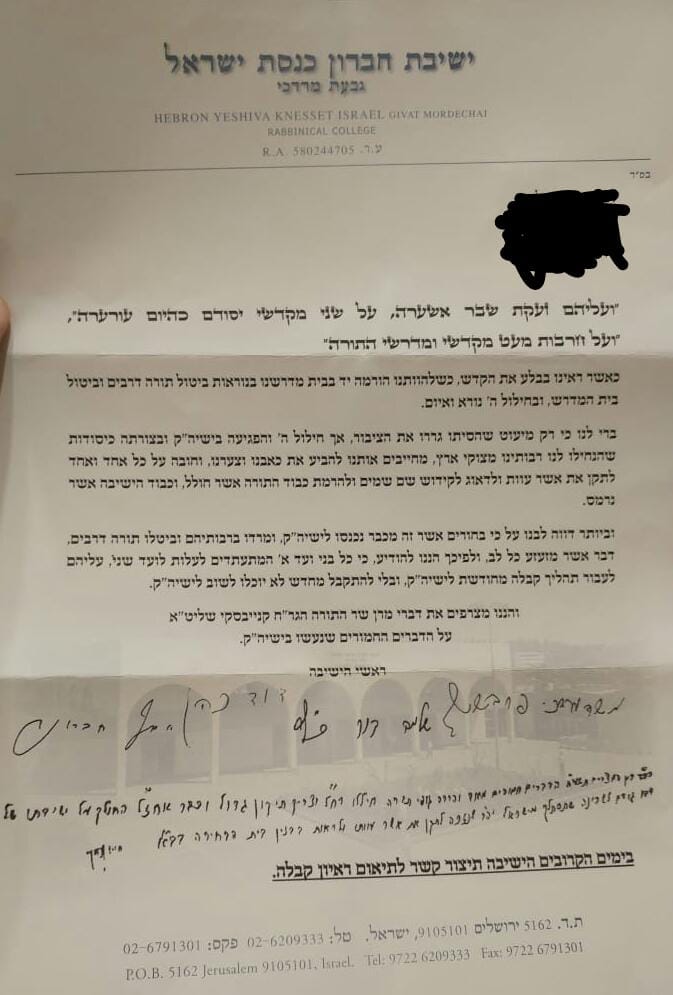 ישיבת חברון כנסת ישראל
גבעת מרדכי
HEBRON YESHIVA KNESSET ISRAEL GIVAT MORDECHAI
RABBINICAL COLLEGE
R.A. 580244705 ע.ר.
בס"ד
"ועליהם זעקת שבר אשערה, על שני מקדשי יסודם כהיום עורערה",
"ועל חרבות מעט מקדשי ומדרשי התורה"
כאשר ראינו בבלע את הקדש, כשלהוותנו הורמה יד בבית מדרשנו בנוראות ביטול תורה דרבים וביטול
בית המדרש, ובחילול ה' נורא ואיום.
ברי לנו כי רק מיעוט שהסיתו גררו את הציבור, אך חילול ה' והפגיעה בישיה"ק ובצורתה כיסודות
שהנחילו לנו רבותינו מצוקי ארץ, מחייבים אותנו להביע את כאבנו וצערנו, וחובה על כל אחד ואחד
לתקן את אשר עוות ולדאוג לקידוש שם שמים ולהרמת כבוד התורה אשר חולל, וכבוד הישיבה אשר
נרמס.
וביותר דווה לבנו על כי בחורים אשר זה מכבר נכנסו לישיה"ק, ומרדו ברבותיהם וביטלו תורה דרבים,
דבר אשר מזעזע כל לב, ולפיכך הננו להודיע, כי כל בני ועד א' המתעתדים לעלות לועד שני, עליהם
לעבור תהליך קבלה מחודשת לישיה"ק, ובלי להתקבל מחדש לא יוכלו לשוב לישיה"ק.
והננו מצרפים את דברי מרן שר התורה הגר"ח קנייבסקי שליט"א
על הדברים החמורים שנעשו בישיה"ק.
ראשי הישיבה
דוד כהן
חברוני
הדברים חמורים מאוד
תיקון גדול וכבר אחז"ל
לתקן את אשר
בימים הקרובים הישיבה תיצור קשר לתיאום ראיון קבלה.
ת.ד. 5162 ירושלים 9105101, ישראל. טל: 02-6209333 פקס: 02-6791301
P.O.B. 5162 Jerusalem 9105101, Israel. Tel: 9722 6209333 Fax: 9722 6791301